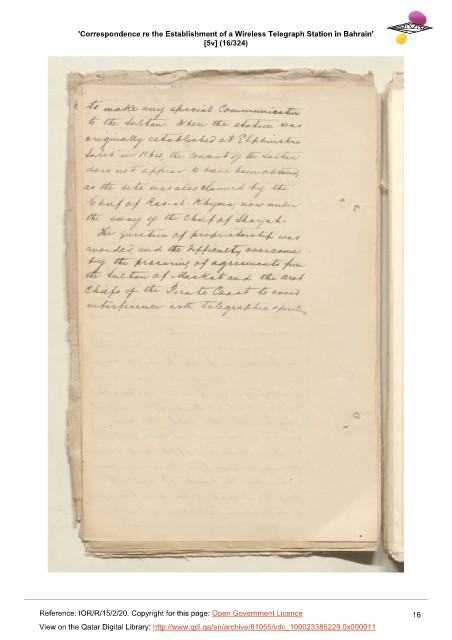 'Correspondence re the Establishment of a Wireless Telegraph Station in Bahrain'
[5v] (16/324)
to make any special Communication
to the Sultan. When the station was
originally established at Elphinstone
Inlet in 1864, the consent of the Sultan
does not appear to have been obtained,
as the site was also claimed by the
Chief of Ras-el-Kheyma, now under
the sway of the Chief of Shargah.
The question of proprietorship was
avoided, and the difficulty overcome
by the procuring of agreements from
the Sultan of Maskat and the Arab
Chiefs of the Pirate Coast to avoid
interference with Telegraphic
Reference: IOR/R/15/2/20. Copyright for this page: Open Government Licence
View on the Qatar Digital Library: http://www.qdl.qa/en/archive/81055/vdc_100023385229.0x000011
16